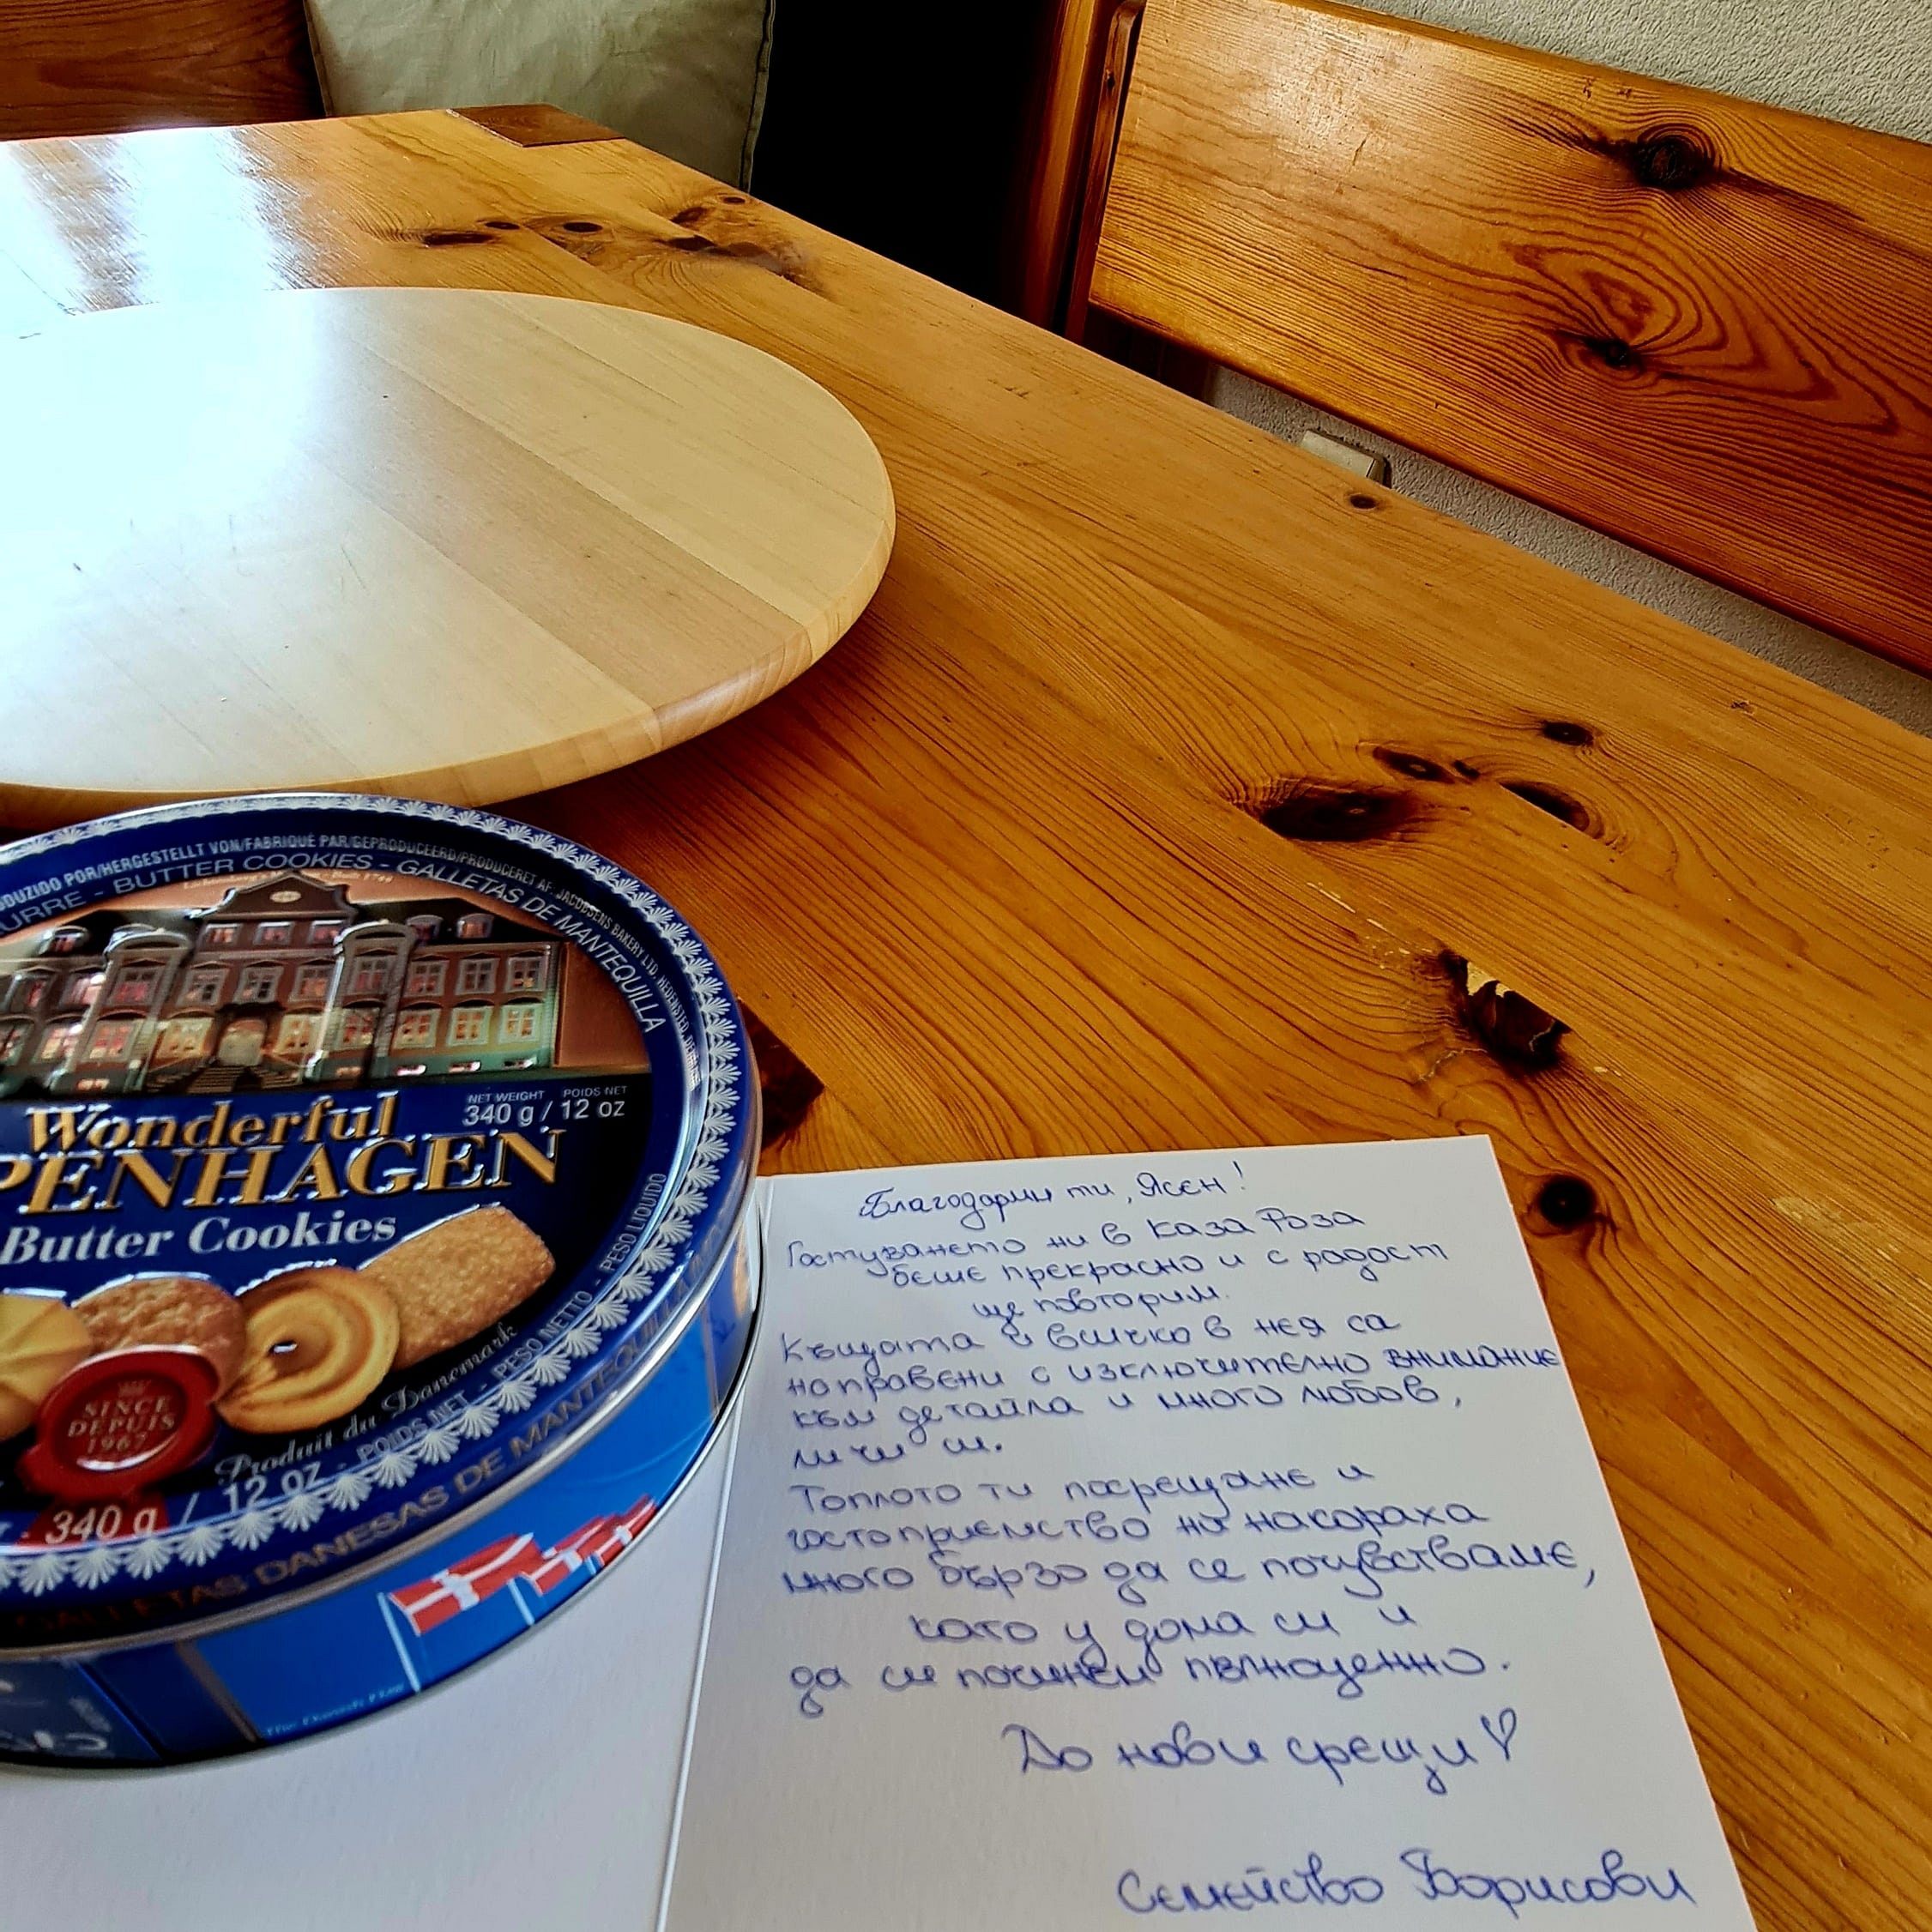 ODUZIDO POR/HERGESTELLT VON/FABRIQUÉ PAR/GEPRODUCEERD/PRODUCERET AF: JACOBSENS BAKERY LTD, HEDENSTED, DE
URRE - BUTTER COOKIES - GALLETAS DE MANTEQUILLA
NET WEIGHT POIDS NET
340 g / 12 oz
Wonderful
PENHAGEN
Butter Cookies
SINCE
DEPUIS
1967
Produit du Danemark
340 g / 12 oz - POIDS NET - PESO NETTO - PESO LIQUIDO
GALLETAS DANESAS DE MANTEQUILLA
Благодарим ти, Ясен!
Гостуването ни в Каза Роза
беше прекрасно и с радост
ще повторим.
Къщата и всичко в нея са
направени с изключително внимание
към детайла и много любов,
личи си.
Топлото ти посрещане и
гостоприемство ни накараха
много бързо да се почувстваме,
като у дома си и
да си починем пълноценно.
До нови срещи ♡
Семейство Борисови